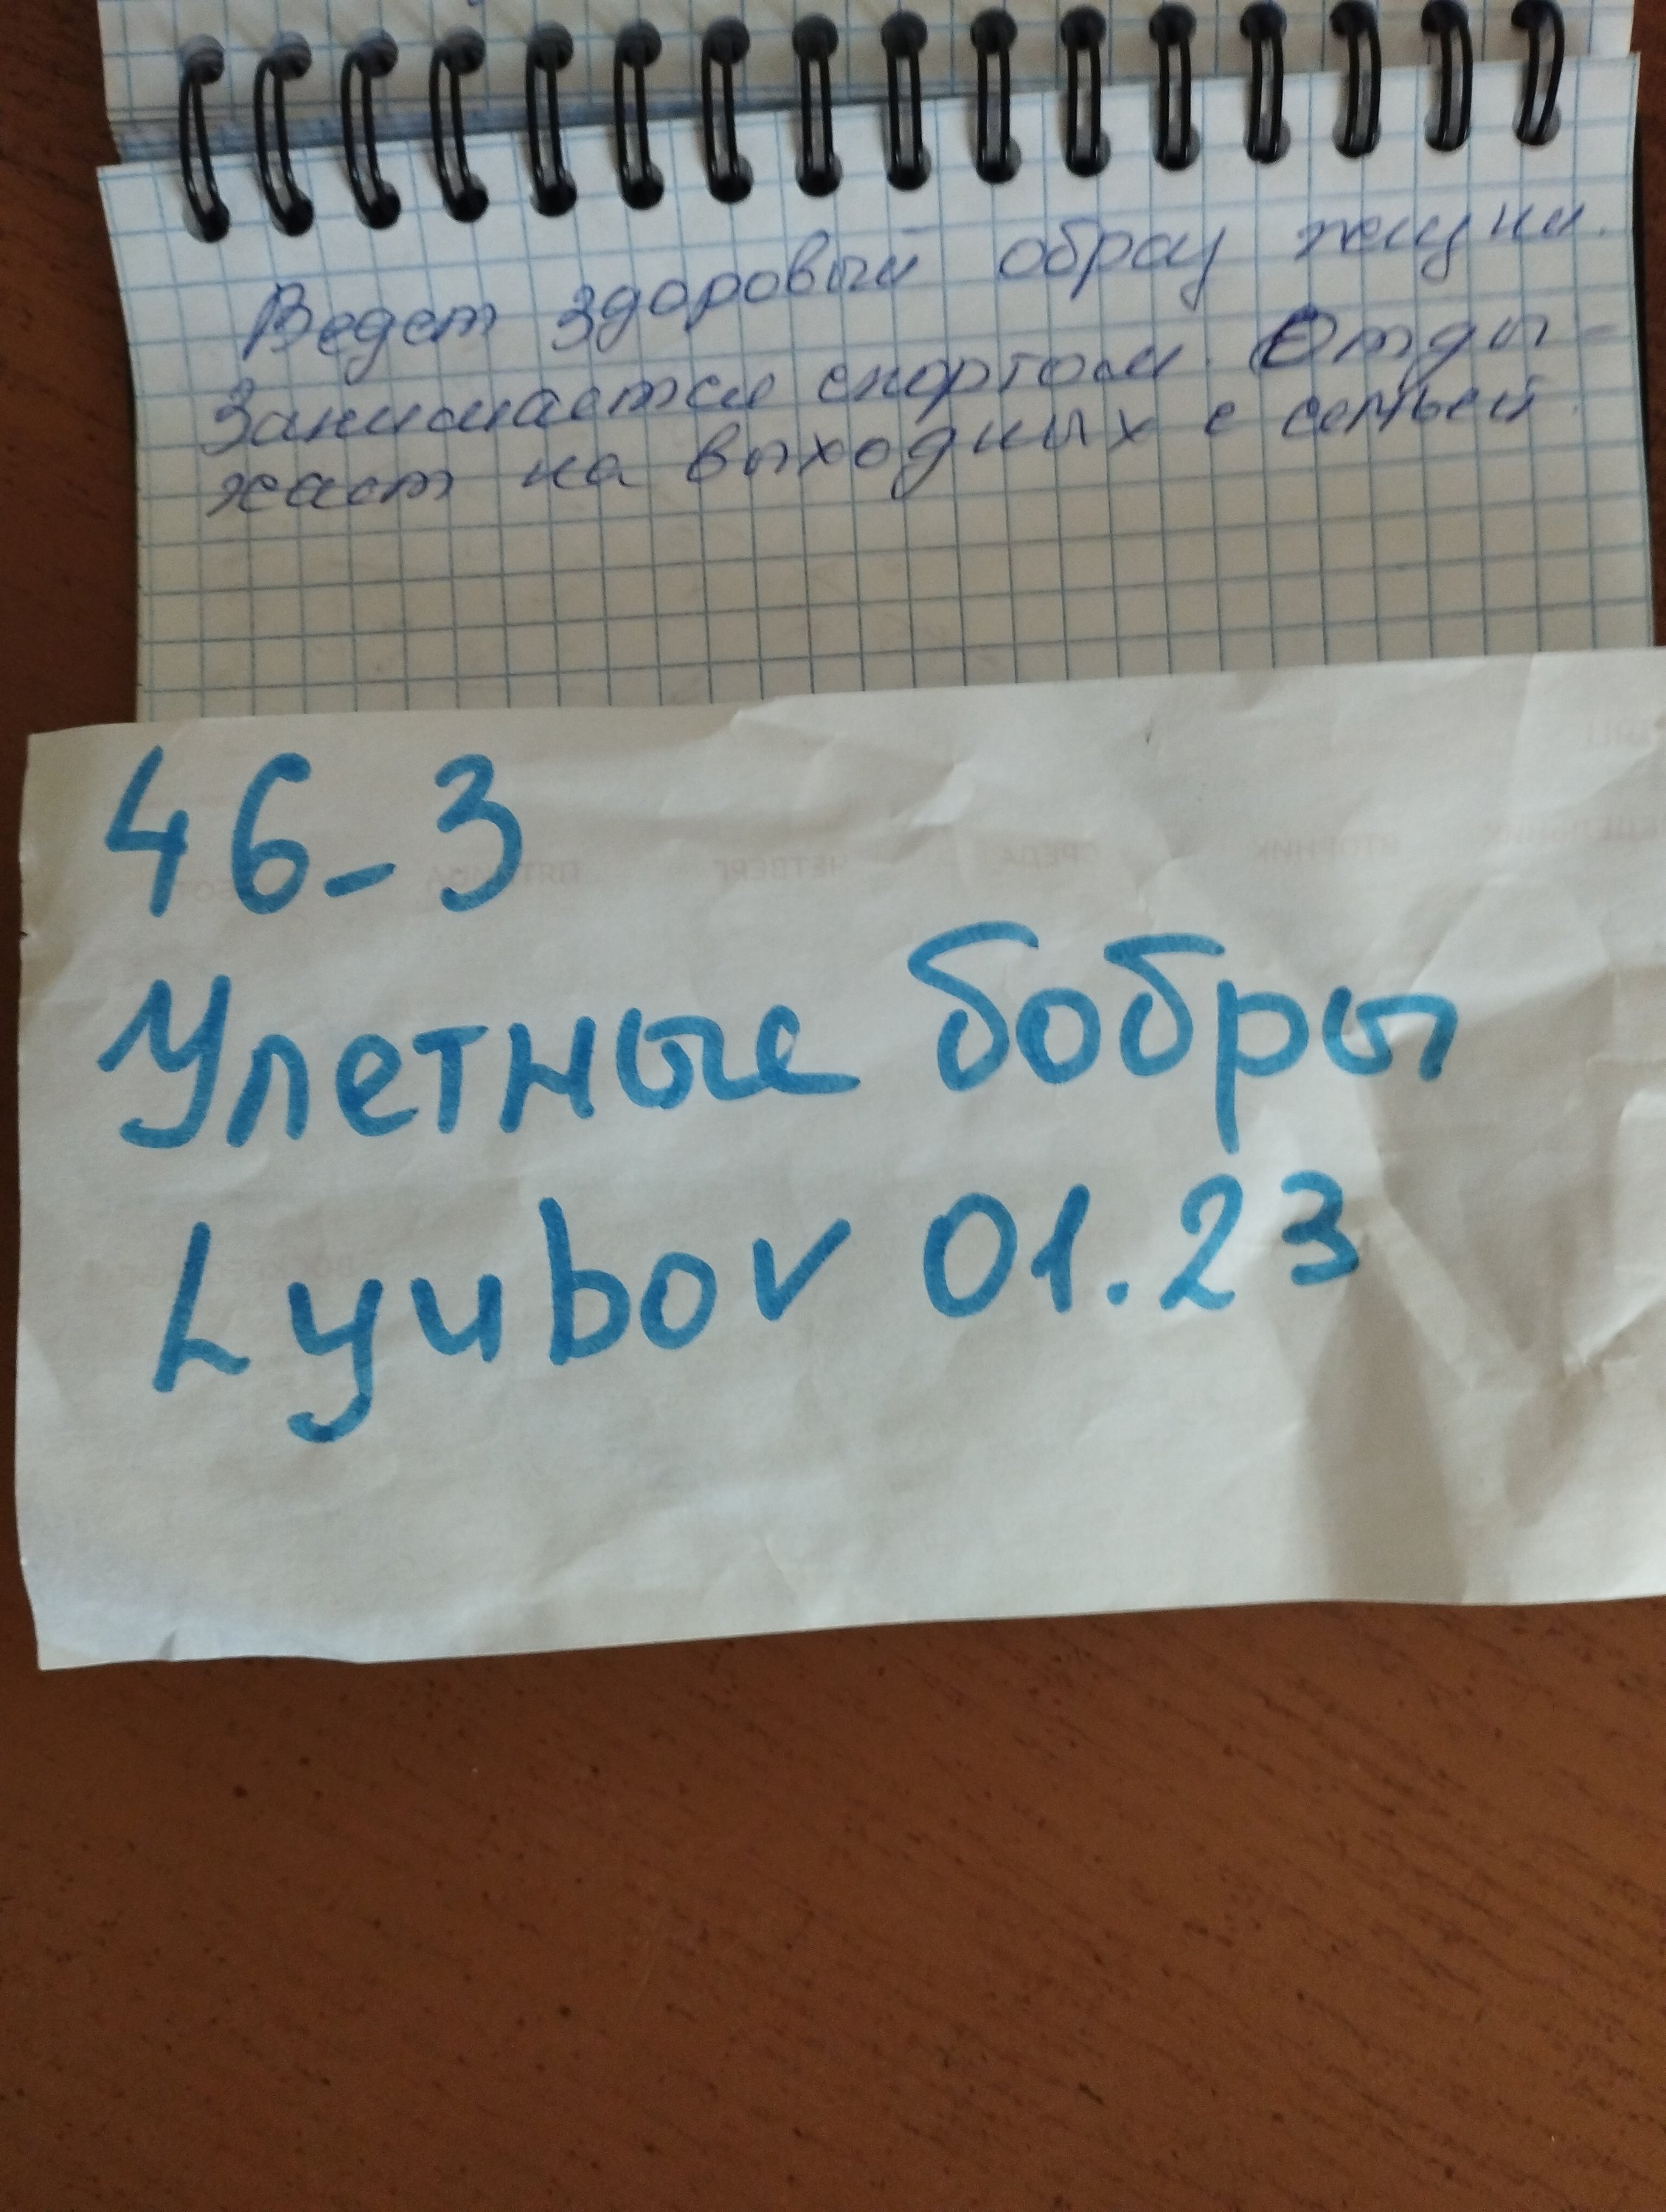 Ведет здоровый образ жизни.
Занимается спортом. Отды-
хает на выходных с семьей.
46-3
ЧЕТВЕРГ СРЕДА ВТОРНИК
Улетные бобры
Lyubov 01.23